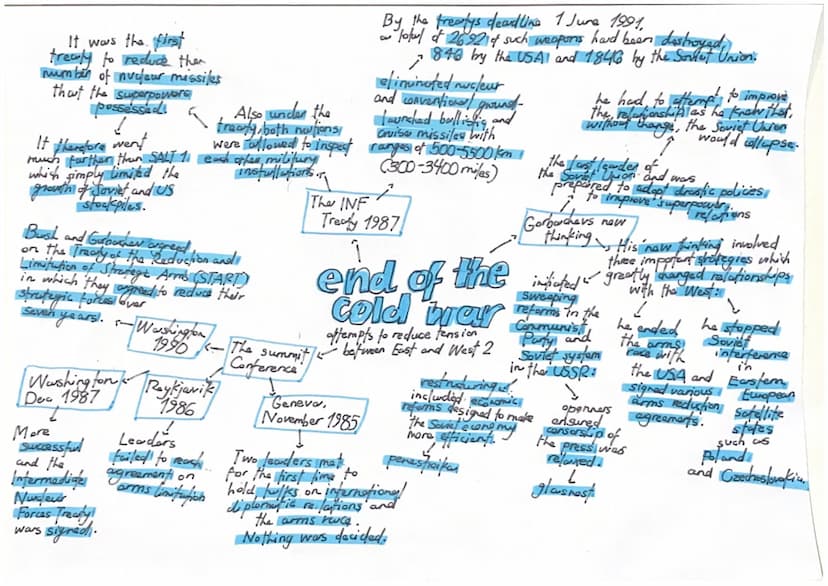 It was the first
treaty to reduce the
number of nuclear missiles
that the superpowers
possessed.
It therefore went
much further than SALT 1,
which simply limited the
growth of Soviet and US
stockpiles.
Also under the
treaty, both nations
were allowed to inspect
each other military
installations.
By the treatys deadline 1 June 1991,
a total of 2692 of such weapons had been destroyed,
846 by the USA and 1846 by the Soviet Union.
eliminated nuclear
and conventional ground-
launched ballistic and
cruise missiles with
ranges of 500-5500 km
(300-3400 miles)
The INF
Treaty 1987
he had to attempt to improve
the relationships as he knew that,
without change, the Soviet Union
would collapse.
the last leader of
the Soviet Union and was
prepared to adopt drastic policies
to improve superpower
relations
Gorbachevs new
thinking
His new thinking involved
three important strategies which
greatly changed relationships
with the West:
end of the
cold war
attempts to reduce tension
between East and West 2
Bush and Gorbachev agreed
on the Treaty of the Reduction and
Limitation of Strategic Arms (START)
in which they agreed to reduce their
strategic forces over
seven years.
Washington
1990
The summit
Conference
Washington
Dec 1987
Reykjavik
1986
Geneva,
November 1985
More
successful
and the
Intermediate
Nuclear
Forces Treaty
was signed.
Leaders
failed to reach
agreement on
arms limitation
Two leaders met
for the first time to
hold talks on international
diplomatic relations and
the arms race.
Nothing was decided.
initiated
sweeping
reforms in the
Communist
Party and
Soviet system
in the USSR:
restructuring
included economic
reforms designed to make
the Soviet economy
more efficient.
perestroika
openness
ensured
censorship of
the press was
relaxed.
glasnost
he ended
the arms
race with
the USA and
signed various
arms reduction
agreements.
he stopped
Soviet
interference
in
Eastern
European
satellite
states
such as
Poland
and Czechoslovakia